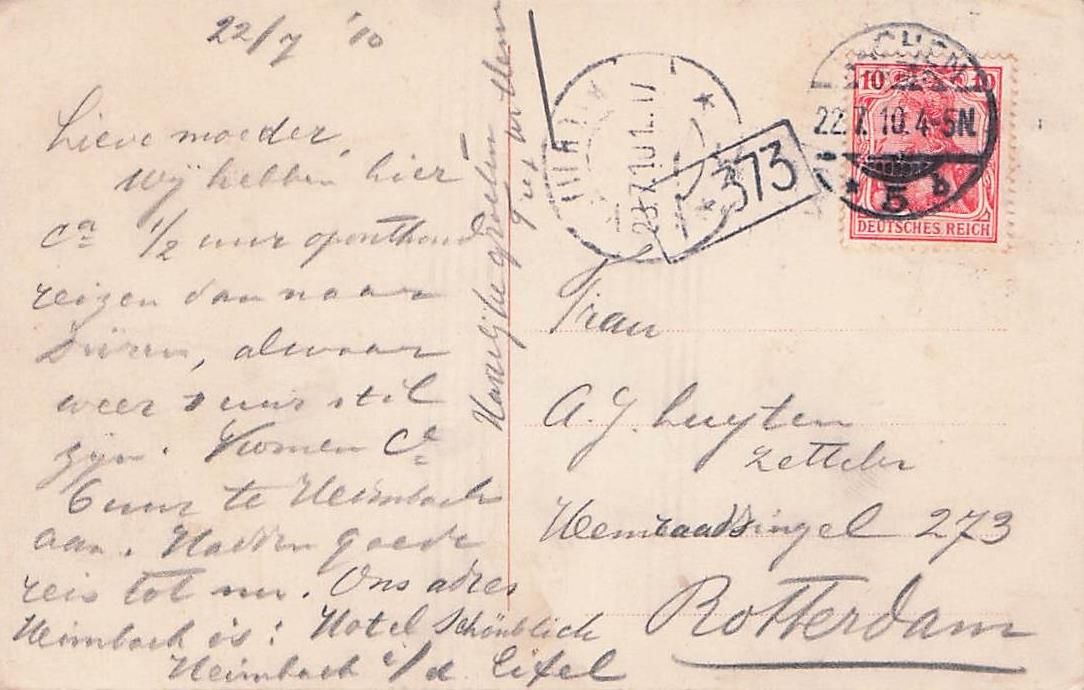 22/7 '10
Lieve moeder,
Wij hebben hier
ca 1/2 uur oponthoud
reizen dan naar
Düren, alwaar
weer uur stil
zijn. Komen ca
6 uur te Heimbach
aan. Hadden goede
reis tot nu. Ons adres
Heimbach is: Hotel Schönblick
Heimbach i/d Eifel
Hartelijke groeten
Willem
373
22.7.10.4-5N
* 5 b
10 10
DEUTSCHES REICH
Frau
A. J. Luyten
Zetteler
Heemraadsingel 273
Rotterdam